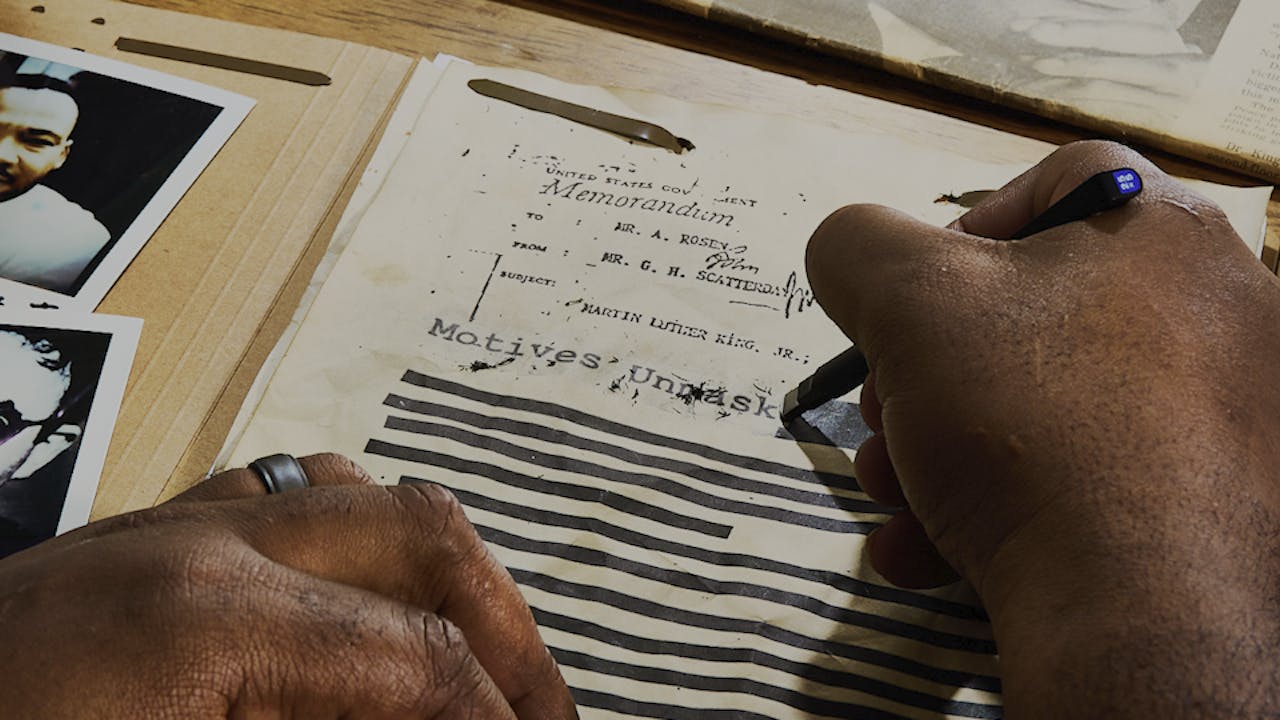 UNITED STATES GOV MENT
Memorandum
TO : MR. A. ROSEN
FROM : MR. G. H. SCATTERDAY
SUBJECT:
MARTIN LUTHER KING, JR.;
Motives Unmask
Dr. King